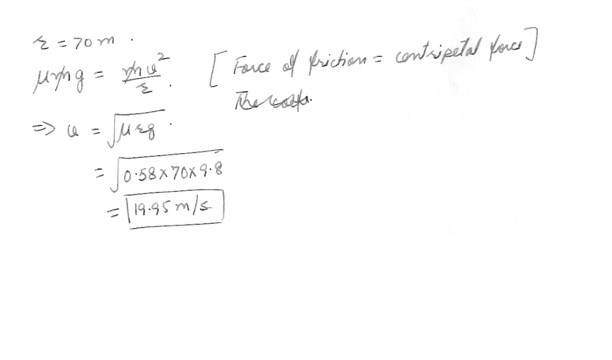 r = 70 m .
μmg = mv²/r . [ Force of friction = centripetal force ]
⇒ v = √μrg .
= √0.58×70×9.8
= 19.95 m/s